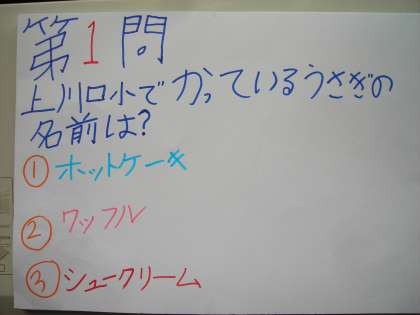 第1問
上川口小でかっているうさぎの
名前は?
①ホットケーキ
②ワッフル
③シュークリーム